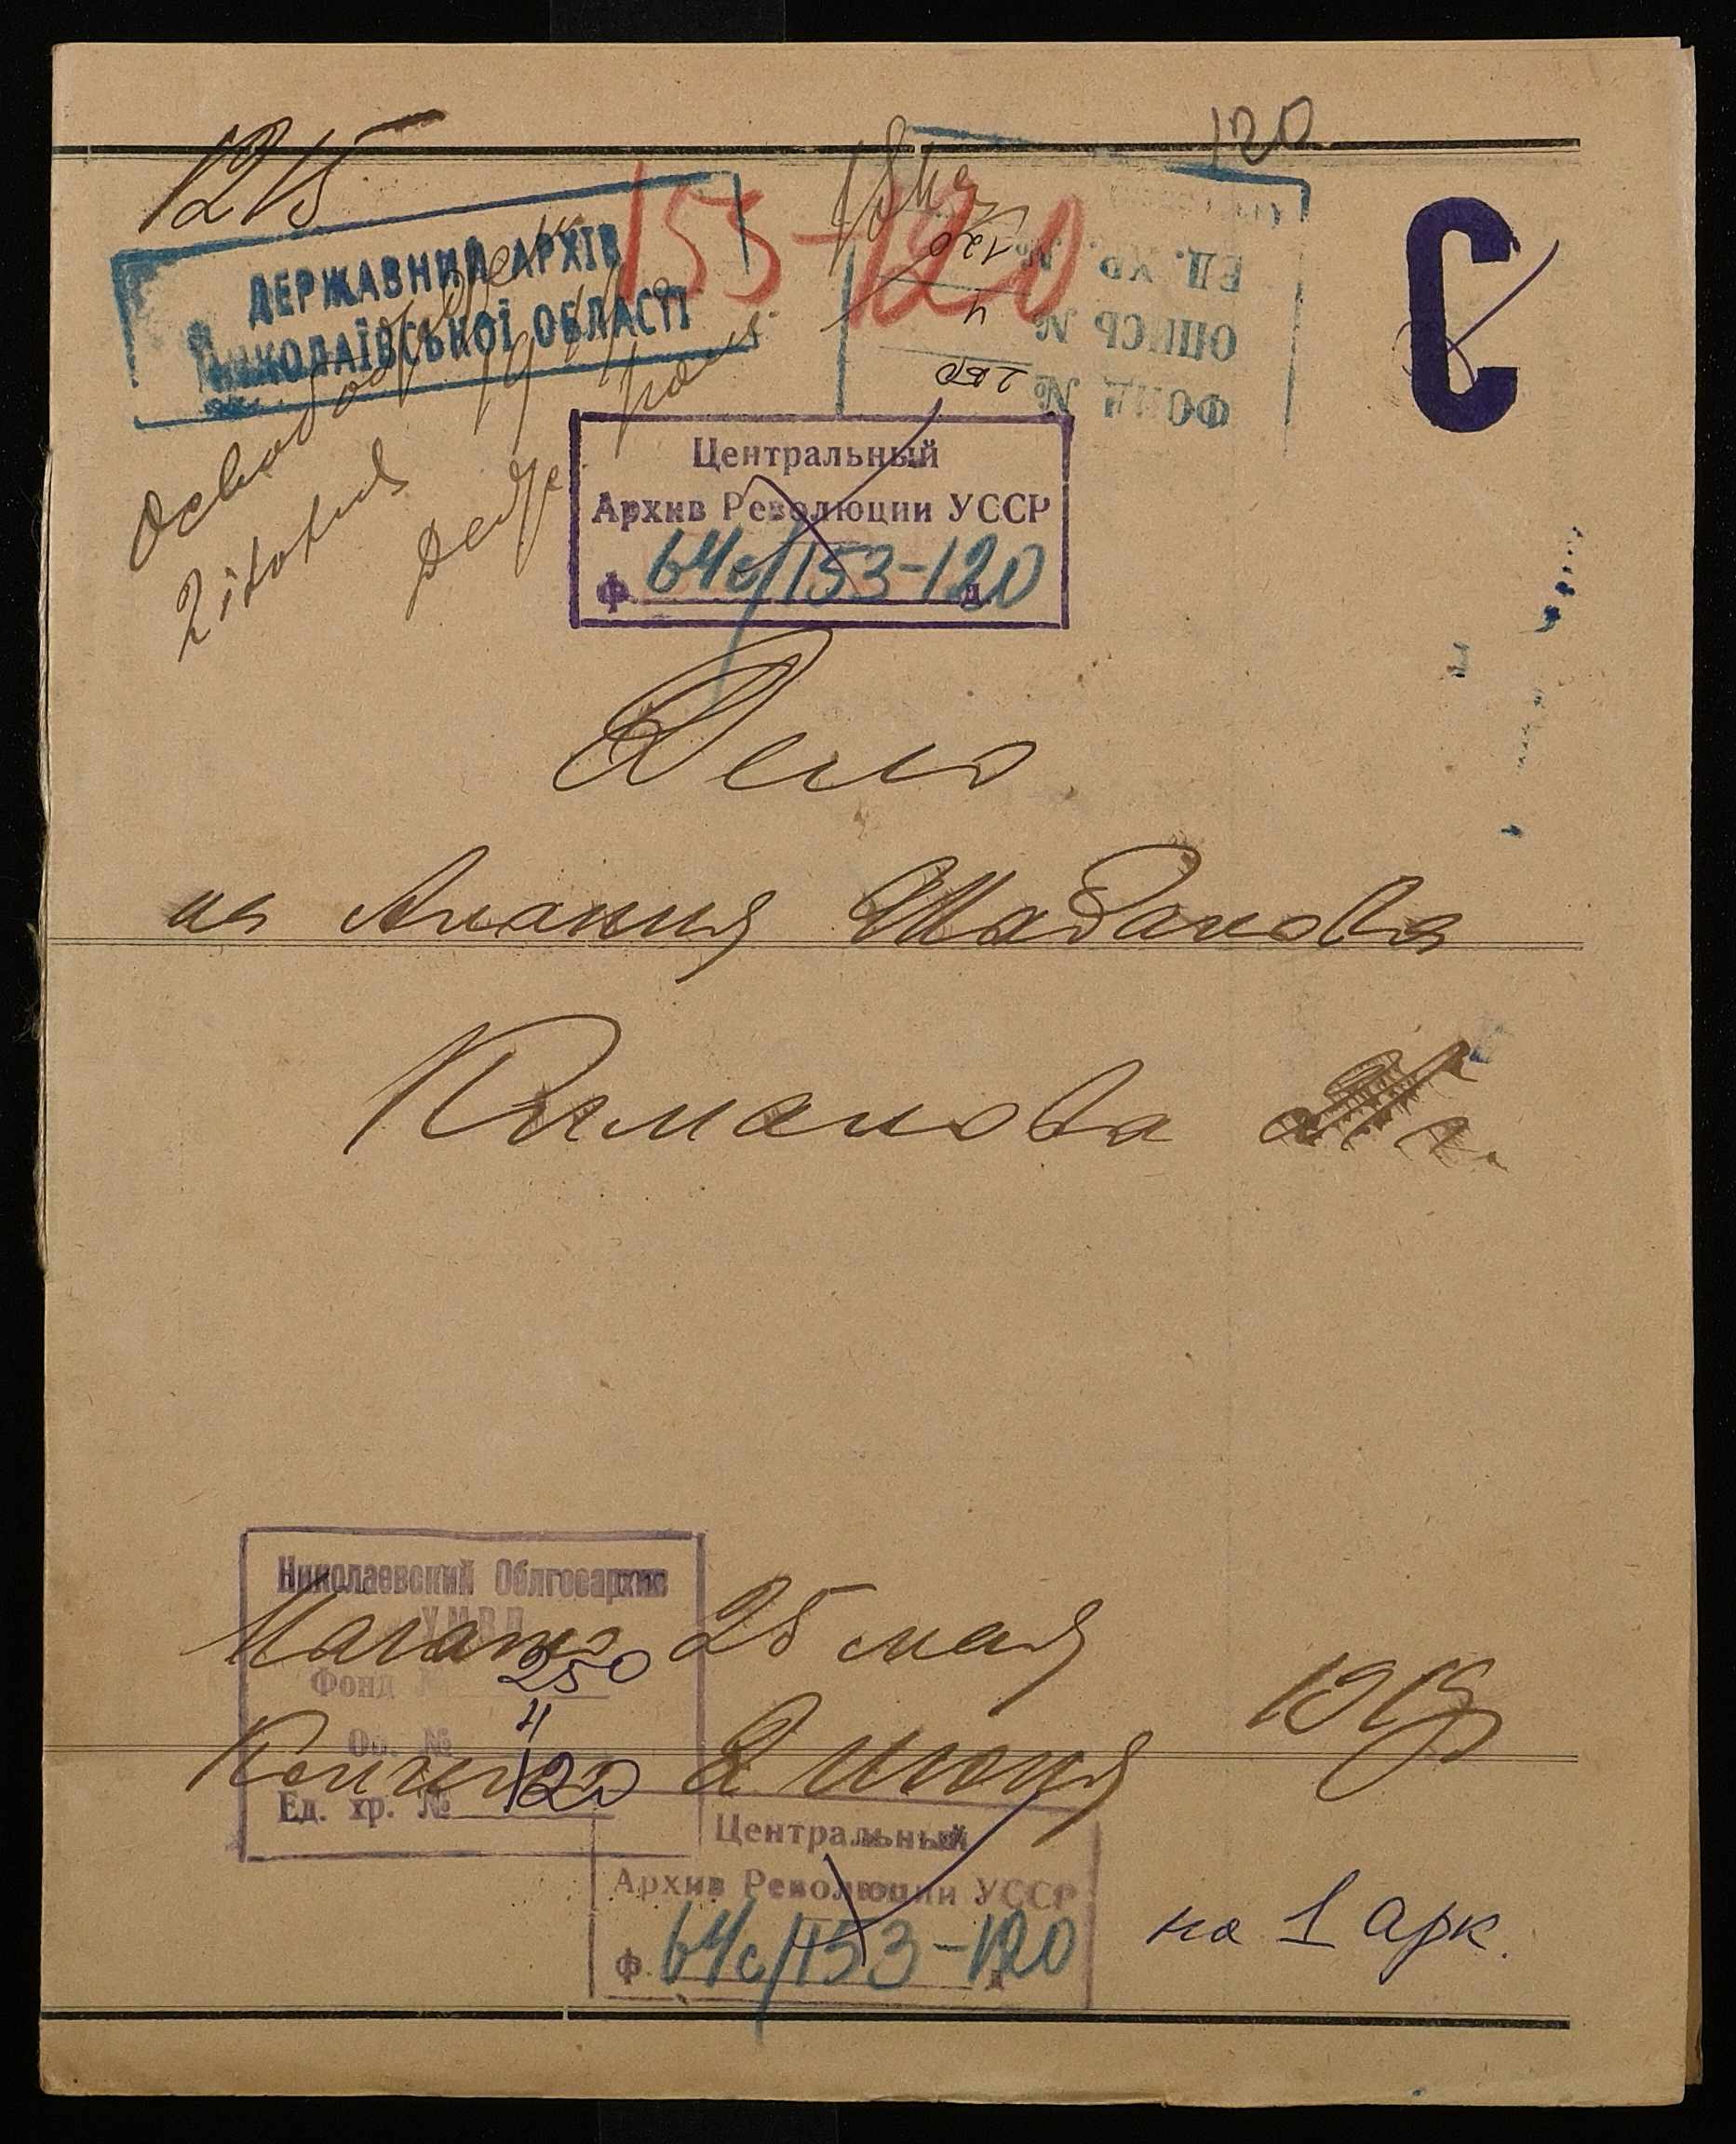 1215
120
155-120
ДЕРЖАВНИЙ АРХІВ
МИКОЛАЇВСЬКОЇ ОБЛАСТІ
ЕД. ХР. № 120
ОПИСЬ № 4
ФОНД № 250
С
2 июня 1919
Центральный
Архив Революции УССР
Ф. 64с/153-120 д.
Дело
на Анания
Климанова
Николаевский Облгосархив
У.М.В.Д.
Начато 25 мая
Фонд № 250
1919
Оп. № 4
Кончено 2 июня
Ед. хр. № 120
Центральный
Архив Революции УССР
Ф. 64с/153-120 д.
на 1 арк.